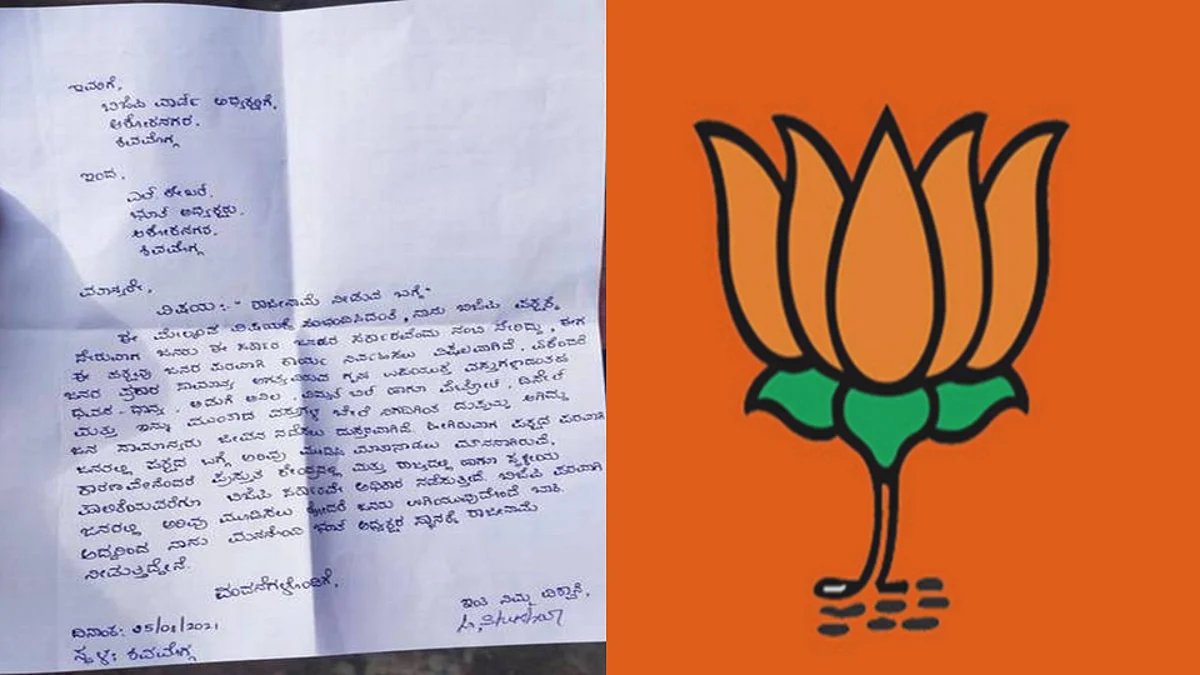 ಇವರಿಗೆ,
ಬಿಜೆಪಿ ವಾರ್ಡ್ ಅಧ್ಯಕ್ಷರಿಗೆ,
ಅಶೋಕನಗರ.
ಶಿವಮೊಗ್ಗ
ಇಂದ,
ಎಲ್ ಶೇಖರ್.
ಬೂತ್ ಅಧ್ಯಕ್ಷರು.
ಅಶೋಕನಗರ.
ಶಿವಮೊಗ್ಗ
ಮಾನ್ಯರೇ,
ವಿಷಯ:- " ರಾಜೀನಾಮೆ ನೀಡುವ ಬಗ್ಗೆ"
ಈ ಮೇಲ್ಕಂಡ ವಿಷಯಕ್ಕೆ ಸಂಭಂದಿಸಿದಂತೆ, ನಾನು ಬಿಜೆಪಿ ಪಕ್ಷಕ್ಕೆ
ಸೇರುವಾಗ ಜನರು ಈ ಸರ್ಕಾರ ಜನಪರ ಸರ್ಕಾರವೆಂದು ನಂಬಿ ಸೇರಿದ್ದು, ಈಗ
ಈ ಪಕ್ಷವು ಜನರ ಪರವಾಗಿ ಕಾರ್ಯ ನಿರ್ವಹಿಸಲು ವಿಫಲವಾಗಿದೆ. ಏಕೆಂದರೆ
ಜನರ ಪ್ರಕಾರ ಸಾಮಾನ್ಯ ಅಗತ್ಯವಿರುವ ಗೃಹ ಉಪಯುಕ್ತ ವಸ್ತುಗಳಾದಂತಹ
ಧವಸ-ಧಾನ್ಯ, ಅಡುಗೆ ಅನಿಲ, ವಿದ್ಯುತ್ ಬಿಲ್ ಹಾಗೂ ಪೆಟ್ರೋಲ್, ಡೀಸೆಲ್
ಮತ್ತು ಇನ್ನೂ ಮುಂತಾದ ವಸ್ತುಗಳ ಬೆಲೆ ನಿಗದಿಗಿಂತ ದುಪ್ಪಟ್ಟು ಆಗಿದ್ದು
ಜನ ಸಾಮಾನ್ಯರು ಜೀವನ ನಡೆಸಲು ದುಸ್ತರವಾಗಿದೆ. ಹೀಗಿರುವಾಗ ಪಕ್ಷದ ಪರವಾಗಿ
ಜನರಲ್ಲಿ ಪಕ್ಷದ ಬಗ್ಗೆ ಅರಿವು ಮೂಡಿಸಿ ಮಾತನಾಡಲು
ಕಾರಣವೇನೆಂದರೆ ಪ್ರಸ್ತುತ ಕೇಂದ್ರದಲ್ಲಿ ಮತ್ತು ರಾಜ್ಯದಲ್ಲಿ ಹಾಗೂ ಸ್ಥಳೀಯ
ಬಿಜೆಪಿ ಸರ್ಕಾರವೇ ಅಧಿಕಾರ ನಡೆಸುತ್ತಿದೆ. ಬಿಜೆಪಿ ಪರವಾಗಿ
ಜನರಲ್ಲಿ ಅರಿವು ಮೂಡಿಸಲು ಹೋದರೆ ಜನರು ಬಾಕಿ.
ಆದ್ದರಿಂದ ನಾನು ಮನನೊಂದು ಬೂತ್ ಅಧ್ಯಕ್ಷರ ಸ್ಥಾನಕ್ಕೆ ರಾಜೀನಾಮೆ
ನೀಡುತ್ತಿದ್ದೇನೆ.
ವಂದನೆಗಳೊಂದಿಗೆ,
ಇಂತಿ ನಿಮ್ಮ ವಿಶ್ವಾಸಿ,
ದಿನಾಂಕ: 05/08/2021
ಸ್ಥಳ: ಶಿವಮೊಗ್ಗ